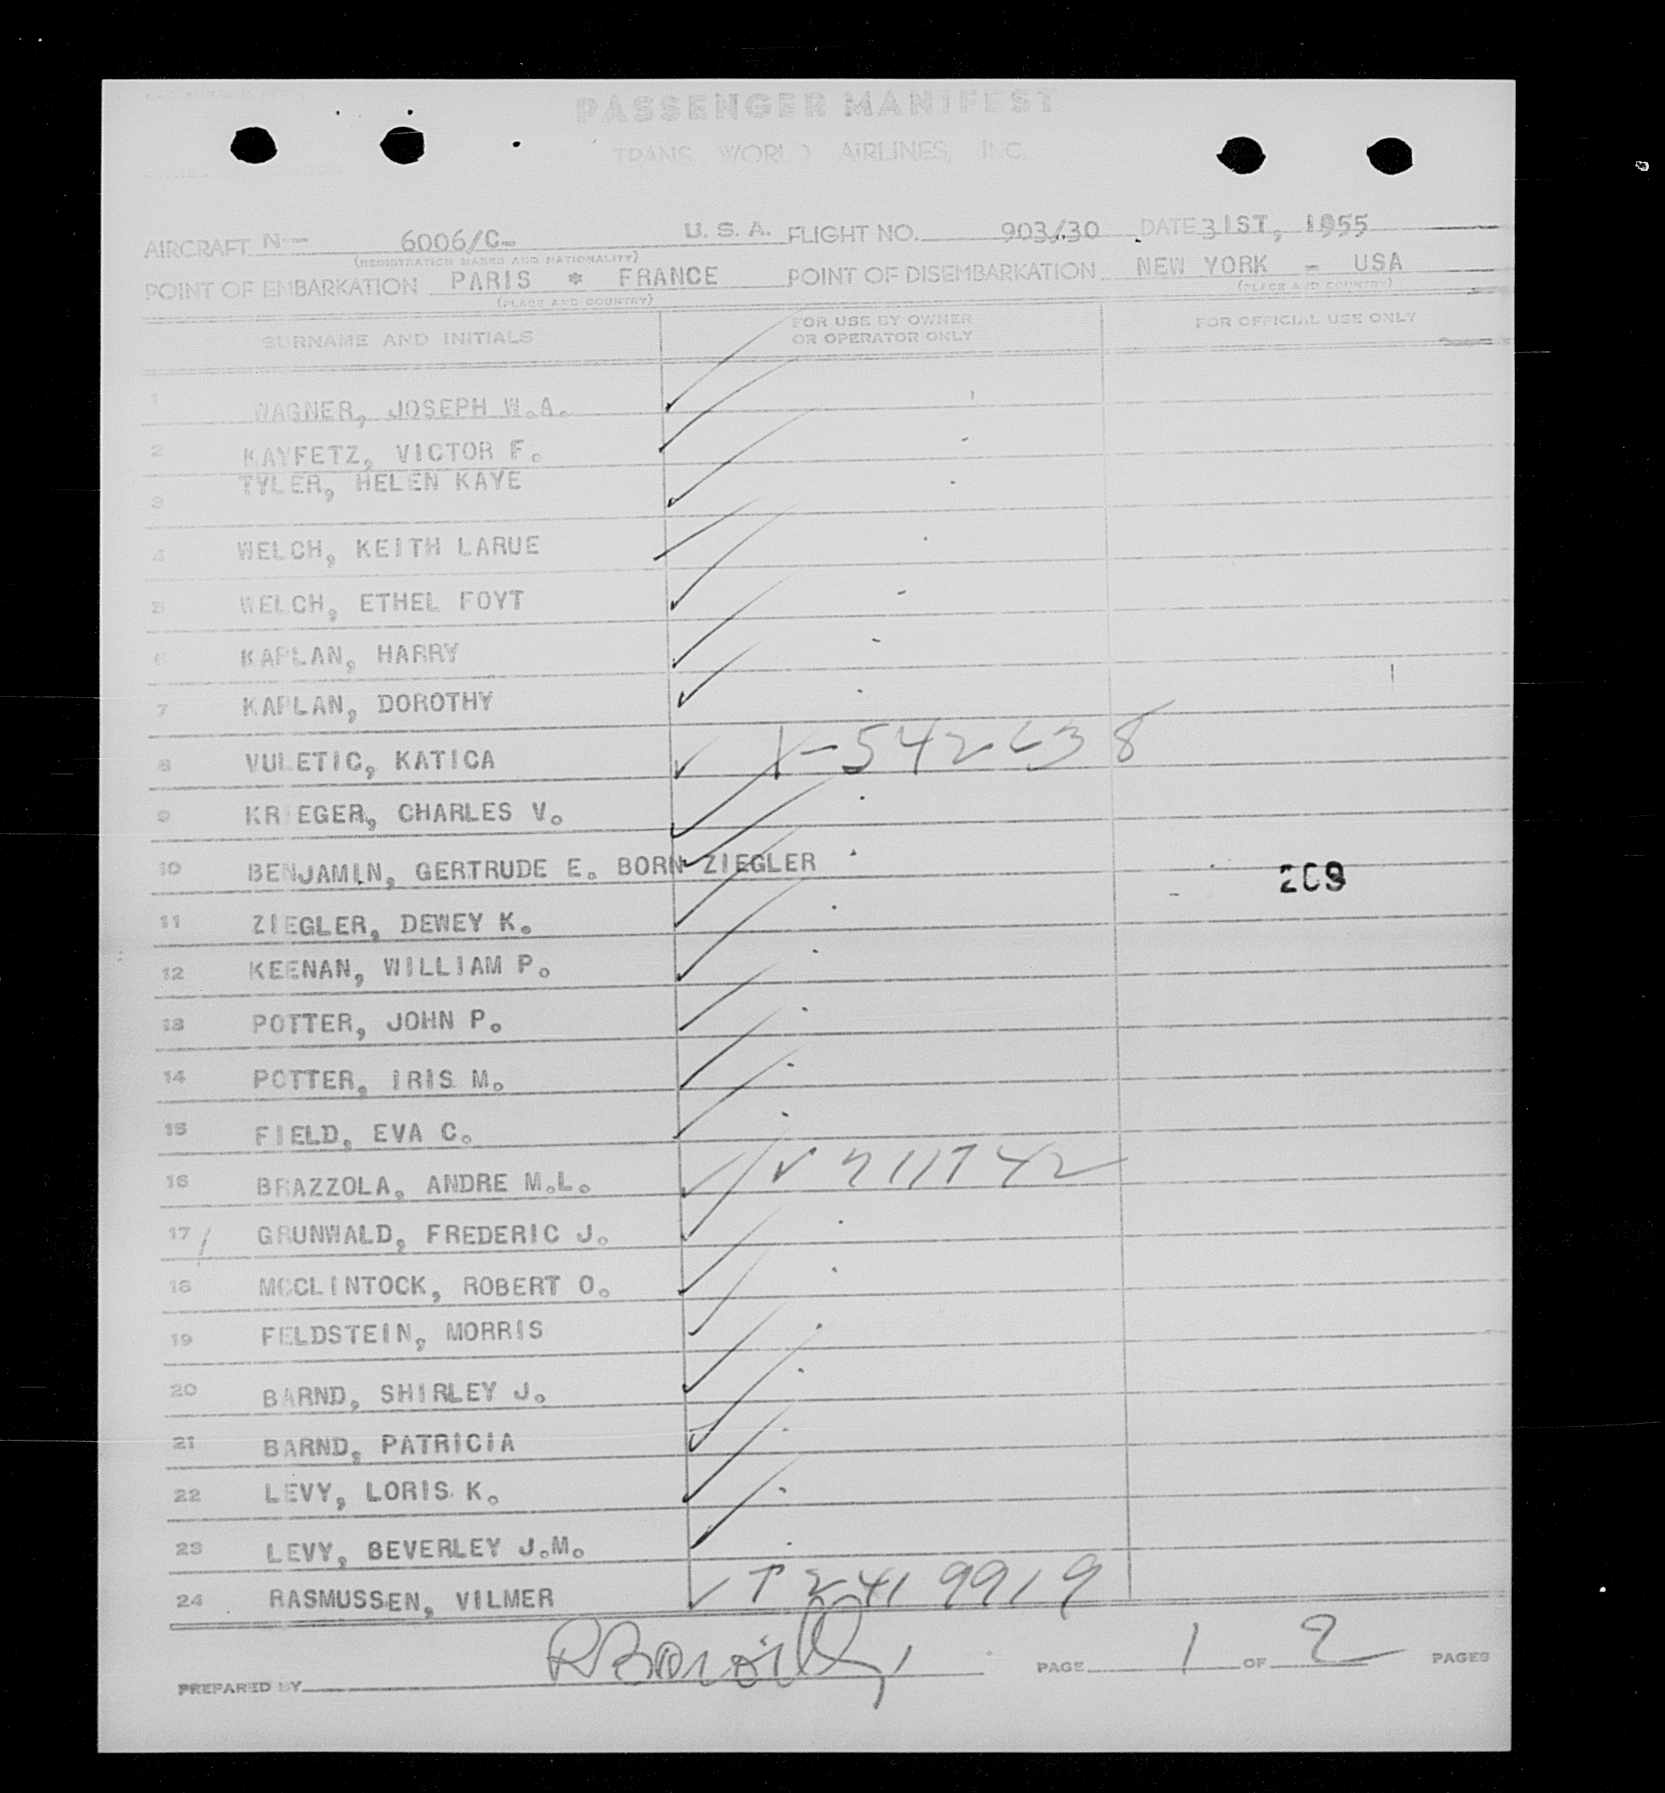 PASSENGER MANIFEST
TRANS WORLD AIRLINES, INC.
AIRCRAFT N— 6006/C- U. S. A. FLIGHT NO. 903/30 DATE 31ST, 1955
(REGISTRATION MARKS AND NATIONALITY)
POINT OF EMBARKATION PARIS * FRANCE POINT OF DISEMBARKATION NEW YORK - USA
(PLACE AND COUNTRY) (PLACE AND COUNTRY)
SURNAME AND INITIALS FOR USE BY OWNER OR OPERATOR ONLY FOR OFFICIAL USE ONLY
1 WAGNER, JOSEPH W.A.
2 KAYFETZ, VICTOR F.
3 TYLER, HELEN KAYE
4 WELCH, KEITH LARUE
5 WELCH, ETHEL FOYT
6 KAPLAN, HARRY
7 KAPLAN, DOROTHY
8 VULETIC, KATICA
9 KRIEGER, CHARLES V.
10 BENJAMIN, GERTRUDE E. BORN ZIEGLER
11 ZIEGLER, DEWEY K.
12 KEENAN, WILLIAM P.
13 POTTER, JOHN P.
14 POTTER, IRIS M.
15 FIELD, EVA C.
16 BRAZZOLA, ANDRE M.L.
17 GRUNWALD, FREDERIC J.
18 MCCLINTOCK, ROBERT O.
19 FELDSTEIN, MORRIS
20 BARND, SHIRLEY J.
21 BARND, PATRICIA
22 LEVY, LORIS K.
23 LEVY, BEVERLEY J.M.
24 RASMUSSEN, VILMER
PREPARED BY PAGE 1 OF 2 PAGES